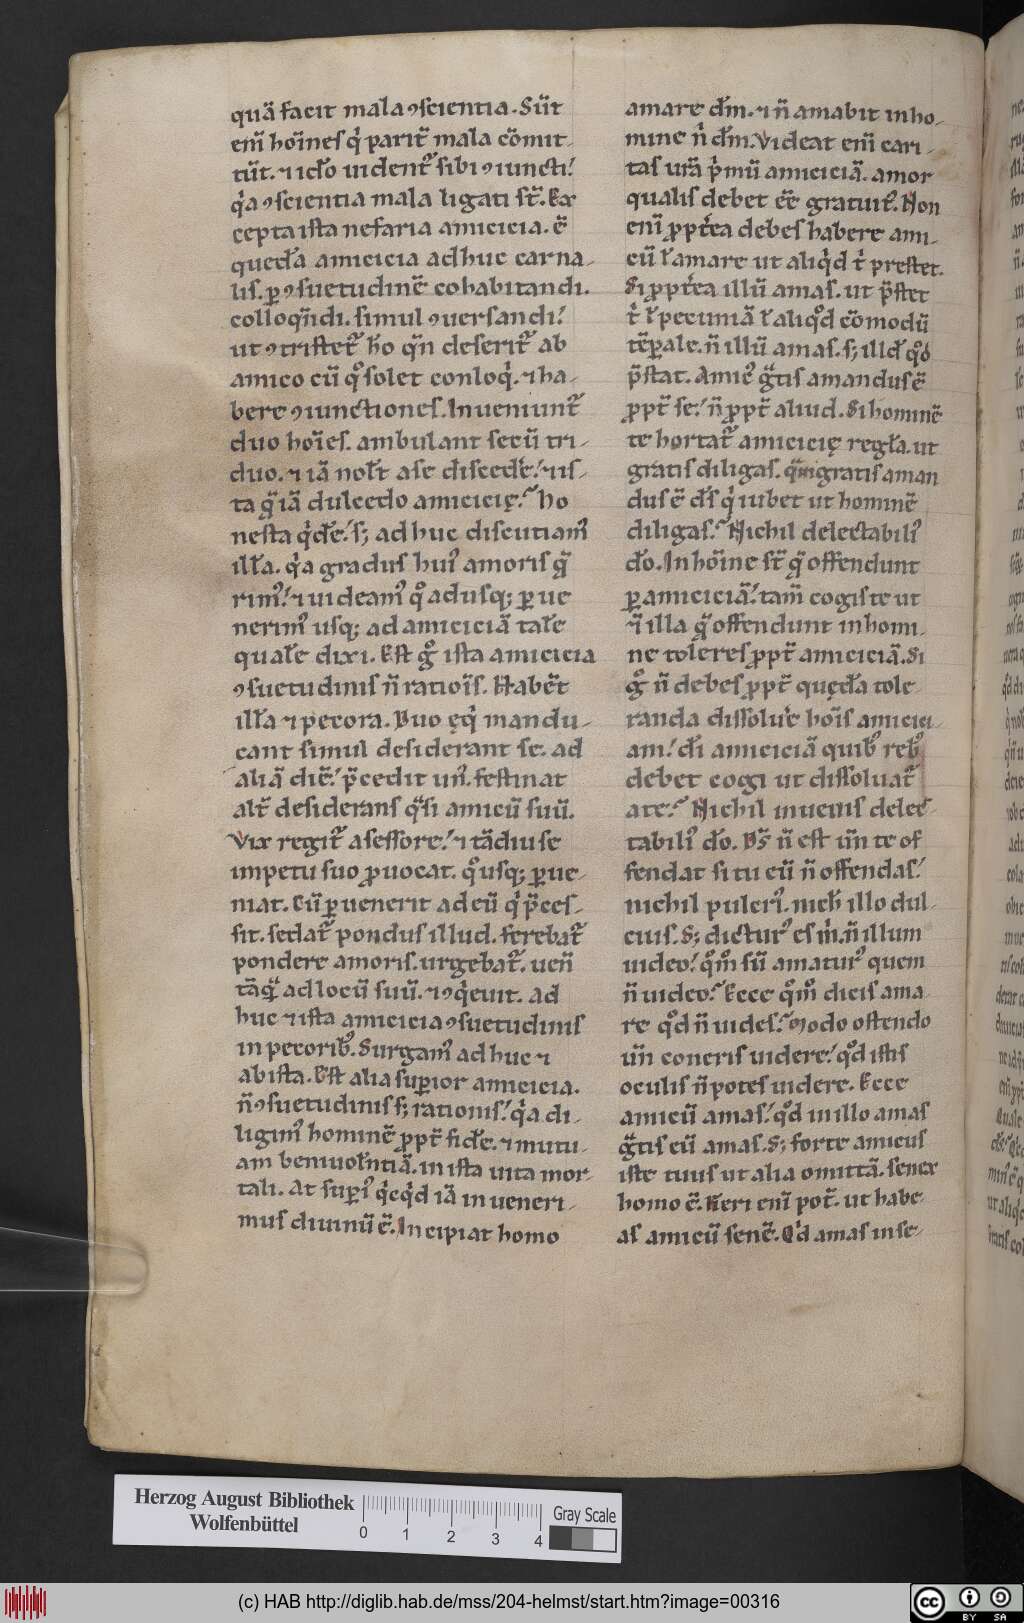 quā facit mala ꝯscientia. Sūt
eni᷑ hoi᷑nes qͥ parit᷑ mala cōmit-
tūt. ⁊ iđo uident᷑ sibi ꝯiuncti!
qͥa ꝯscientia mala ligati st᷑. Ex
cepta ista nefaria amicicia. ē
quedā amicicia adhuc carna-
lis. ꝑ ꝯsuetudinē cohabitandi.
colloqn᷑di. simul ꝯuersandi!
ut ꝯtristet᷑ ho᷑ qn᷑ deserit᷑ ab
amico cū qͦ solet conloqͥ. ⁊ ha-
bere ꝯiunctiones. Inueniunt᷑
duo hoi᷑es. ambulant secū tri-
duo. ⁊ iā nolt᷑ a se discedere! ⁊ is-
ta qͣ iā dulcedo amicicię. Ho
nesta qͥđe! sꝫ adhuc discutiam᷒
illa᷑. qͥa gradus hui᷒ amoris qͣ
rim᷒! ⁊ uideam᷒ qͦ adusqꝫ ꝑue
nerim᷒ usqꝫ ad amiciciā tale᷑
quale᷑ dixi. Est gͦ ista amicicia
ꝯsuetudinis n̄ ratiois᷑. Habēt
illā ⁊ pecora. Duo ęqͥ mandu-
cant simul desiderant se. ad
aliā diē! p̄cedit un᷒. festinat
alt᷑ desiderans qͣsi amicū suū.
Vix regit᷑ a sessore! ⁊ tādiu se
impetu suo ꝓuocat. qͦusqꝫ ꝑue-
niat. Cū ꝑuenerit ad eū qͥ p̄ces-
sit. sedat᷑ pondus illud. ferebat᷑
pondere amoris. urgebat᷑. uen̄
tāqͣ ad locū suū. ⁊ ꝯqͥeuit. Ad
huc ⁊ ista amicicia ꝯsuetudinis
in pecoribꝰ. Surgam᷒ adhuc ⁊
ab ista. Est alia superior amicicia.
n̄ ꝯsuetudinis sꝫ rationis! qͥa di-
ligim᷒ hominē ꝓpt᷑ fide᷑. ⁊ mutu-
am beniuolentiā. in ista uita mor-
tali. At sup᷑i᷒ qͥcqͥd iā inueneri-
mus diuinū ē. Incipiat homo
amare dm᷑. ⁊ n̄ amabit in ho-
mine ni᷑ dm᷑. Videat eni᷑ cari-
tas ur᷑ā pͥmū amiciciā. amor
qualis debet ēē gratuit᷒. Non
eni᷑ ꝓpt᷑ea debes habere ami-
cū ł amare ut aliqͥd tͥ prestet.
Si ꝓpt᷑ea illū amas. ut p̄stet
tͥ ł pecuniā ł aliqͦd cōmodū
tēꝑale. n̄ illū amas. sꝫ illđ qͦd
p̄stat. Amic᷒ gͣtis amandus ē
ꝓpt᷑ se! n̄ ꝓpt᷑ aliud. Si hominē
te hortat᷑ amicicię regla᷑. ut
gratis diligas. qͣm gratis aman
dus ē ds᷑ qͥ iubet ut hominē
diligas. Nichil delectabili᷒
do᷑. In hōine st᷑ qͣ offendunt
ꝑ amiciciā! tam̄ cogis te ut
⁊ illa qͣ offendunt in homi-
ne toleres ꝓpt᷑ amiciciā. Si
gͦ n̄ debes ꝓpt᷑ quęda᷑ tole-
randa dissolue᷑ hois᷑ amicici-
am! di᷑ amiciciā quibꝰ rebꝰ
debet cogi ut dissoluat᷑
a te. Nichil inuenis delec-
tabili᷒ do᷑. Ds᷑ n̄ est un̄ te of
fendat si tu eū n̄ offendas!
nichil pulcri᷒. nich᷑ illo dul-
cius. Sꝫ dictur᷒ es mͥ. n̄ illum
uideo! qͦmͦ sū amatur᷒ quem
n̄ uideo. Ecce qͦmͦ dicis ama
re qͦd n̄ uides. Modo ostendo
un̄ coneris uidere! qͦd istis
oculis n̄ potes uidere. Ecce
amicū amas! qͦd in illo amas
gͣtis eū amas. Sꝫ forte amicus
iste tuus ut alia omittā. senex
homo ē. Fieri eni᷑ pot᷑. ut habe-
as amicū senē. Qͥd amas in se-
Herzog August Bibliothek
Wolfenbüttel
0 1 2 3 4
Gray Scale
(c) HAB http://diglib.hab.de/mss/204-helmst/start.htm?image=00316
cc BY SA